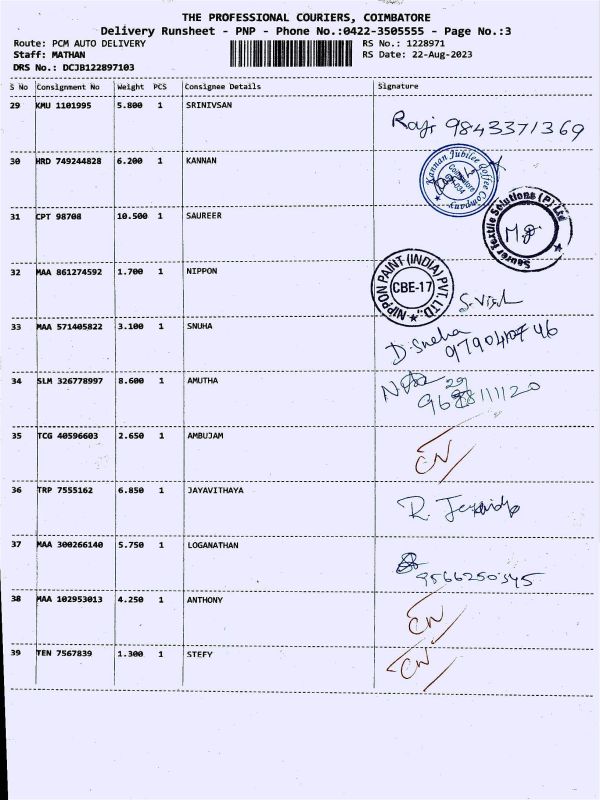 THE PROFESSIONAL COURIERS, COIMBATORE
Delivery Runsheet - PNP - Phone No.:0422-3505555 - Page No.:3
Route: PCM AUTO DELIVERY RS No.: 1228971
Staff: MATHAN RS Date: 22-Aug-2023
DRS No.: DCJB122897103
S No Consignment No Weight PCS Consignee Details Signature
29 KMU 1101995 5.800 1 SRINIVSAN
Raji 9843371369
30 HRD 749244828 6.200 1 KANNAN
Kannan Jubilee Coffee Company
31 CPT 98708 10.500 1 SAUREER
Saurer Textile Solutions (P) Ltd
32 MAA 861274592 1.700 1 NIPPON
NIPPON PAINT (INDIA) PVT. LTD.
CBE-17
33 MAA 571405822 3.100 1 SNUHA
D. Sneha
34 SLM 326778997 8.600 1 AMUTHA
35 TCG 40596603 2.650 1 AMBUJAM
CN
36 TRP 7555162 6.850 1 JAYAVITHAYA
37 MAA 300266140 5.750 1 LOGANATHAN
9566250545
38 MAA 102953013 4.250 1 ANTHONY
CN
39 TEN 7567839 1.300 1 STEFY
CN